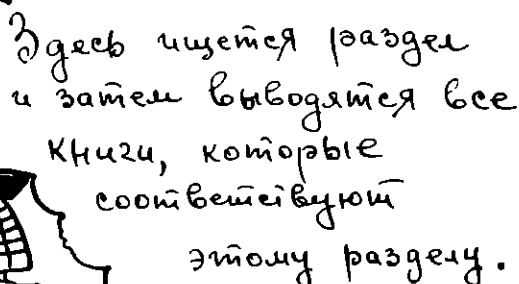 Здесь ищется раздел
и затем выводятся все
книги, которые
соответствуют
этому разделу.